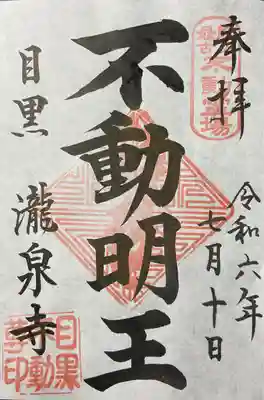 奉拝
令和六年
七月十日
不動明王
目黒
瀧泉寺
目黒
不動
尊印